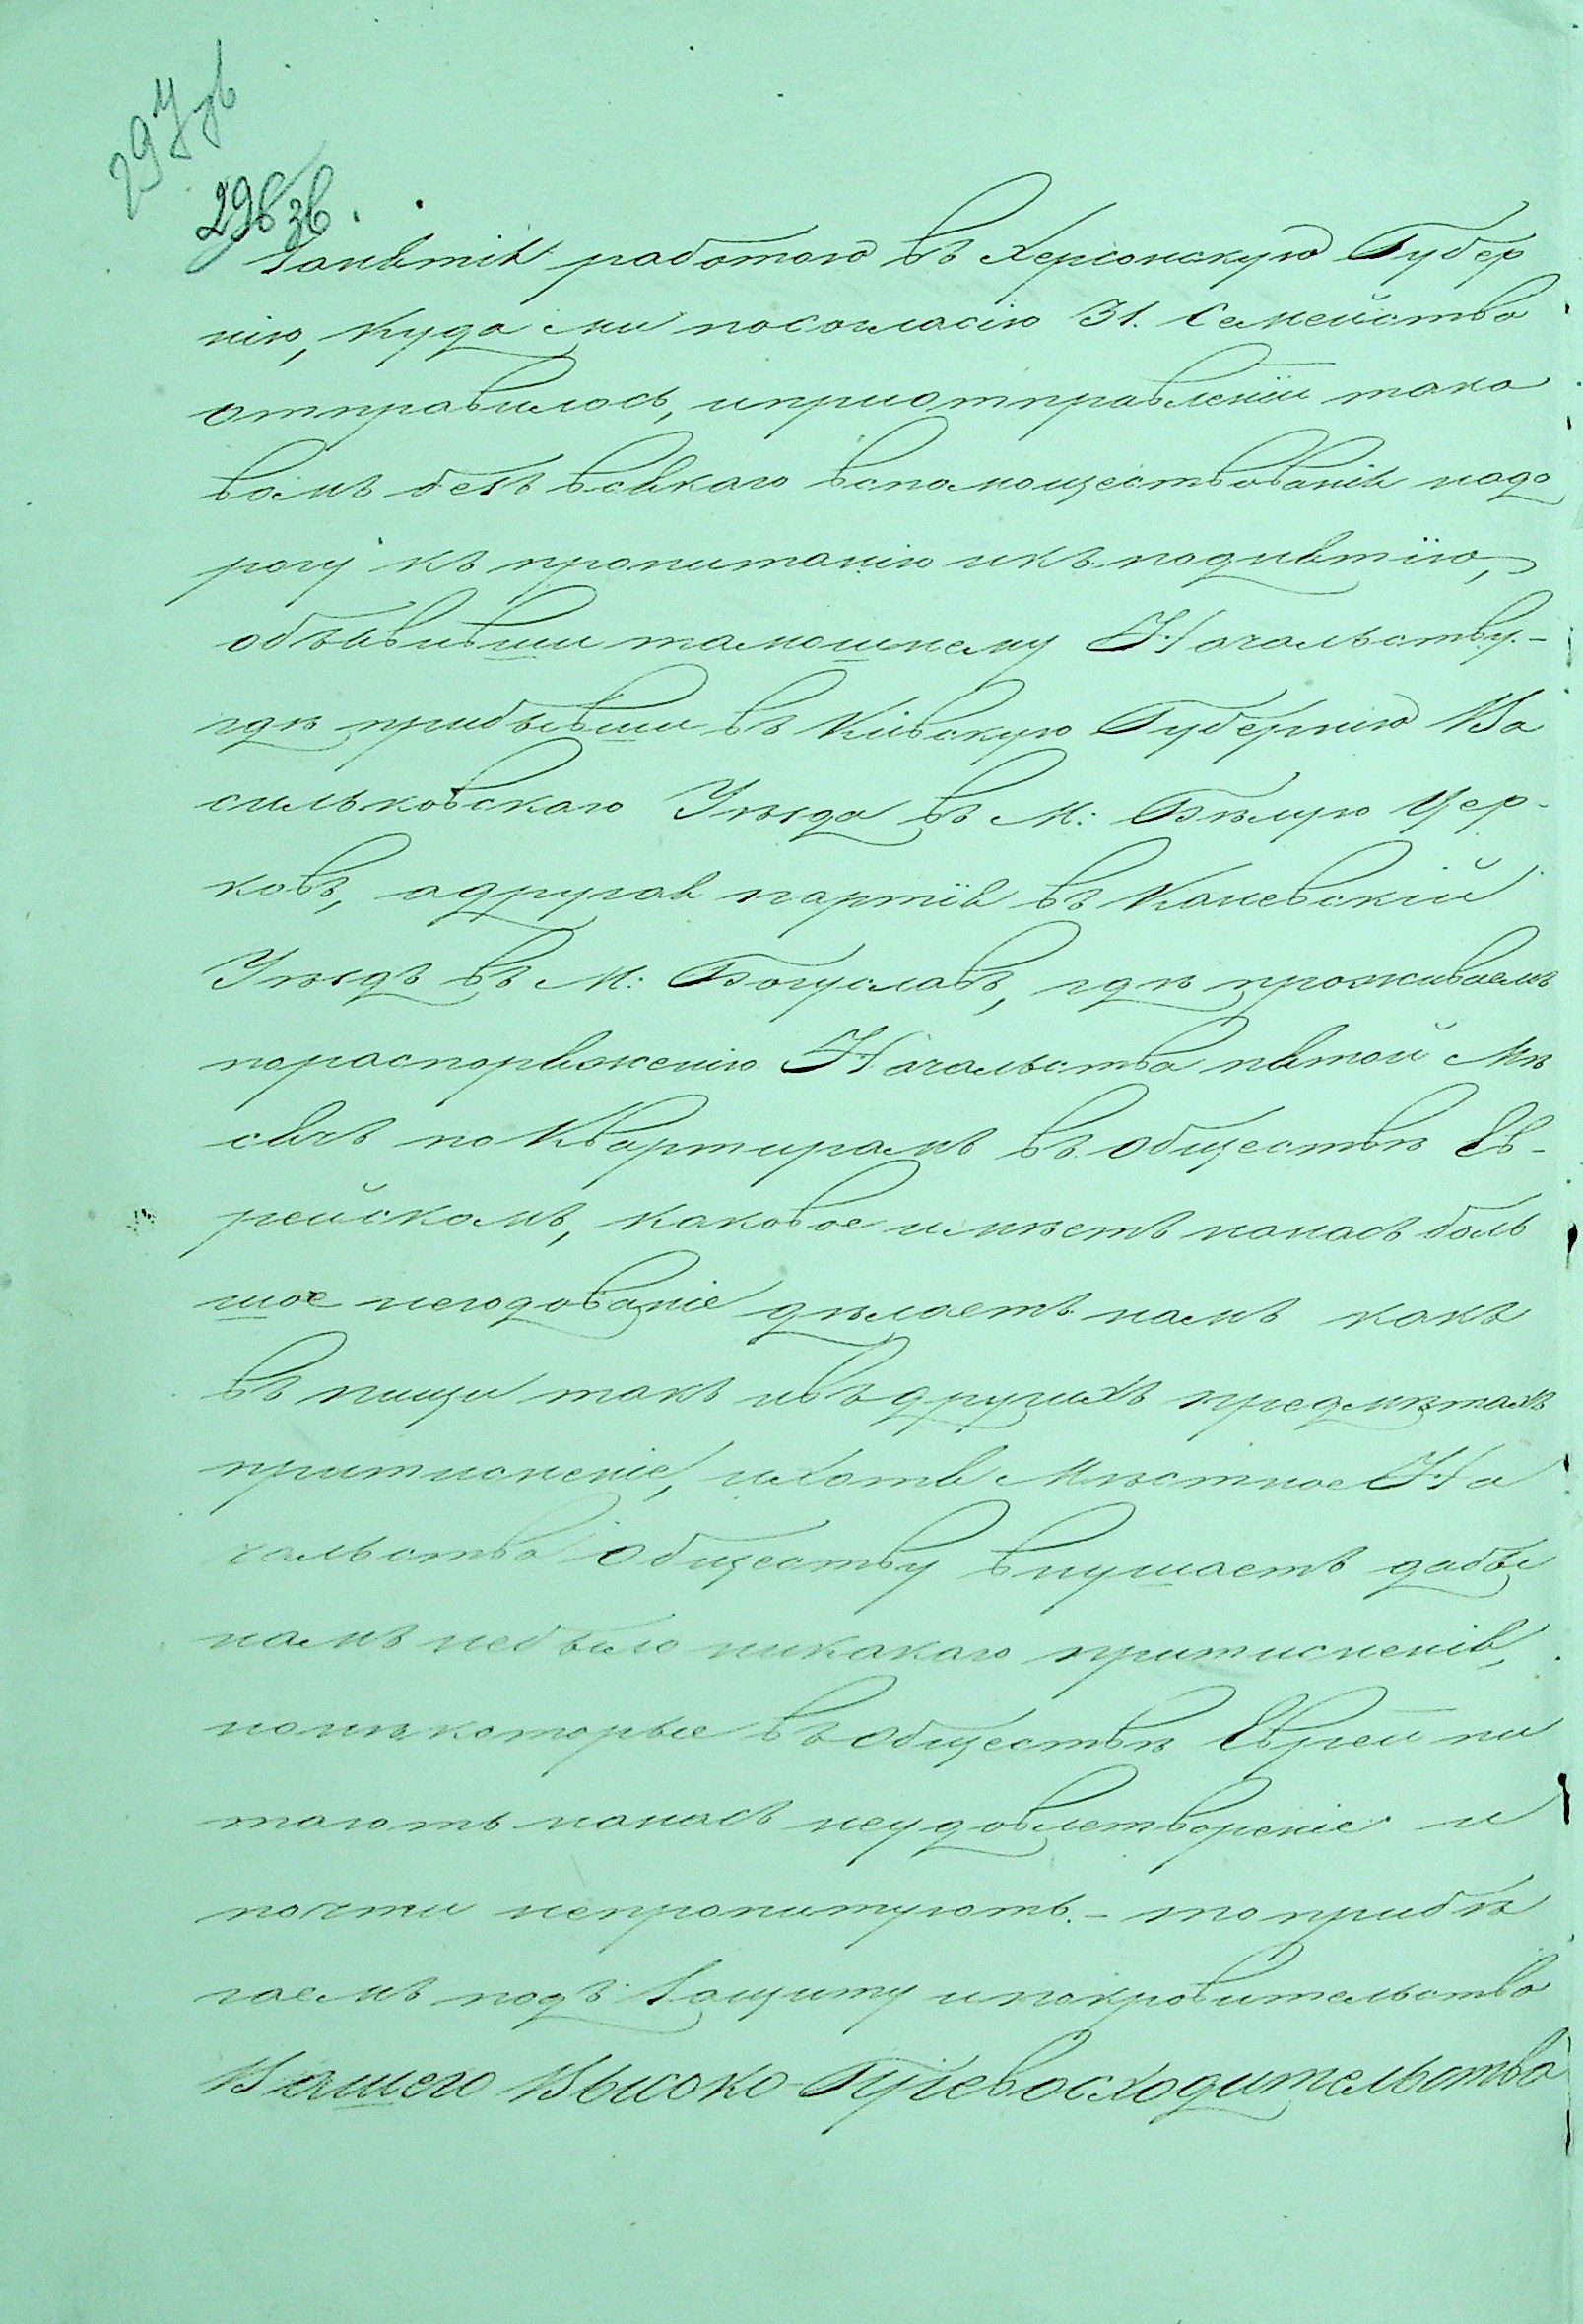 297 зв
298 зв.
занятія работою въ Херсонскую Губер
нію, куда ми посогласію 31. Семейство
отправилось, иприотправленіи тако
вомъ безъ всякаго вспомоществованія надо
рогу къ пропитанію икъ поднятію,
объявивши тамошнему Начальству.-
гдѣ прибывши въ Кіевскую Губернію Ва
сильковскаго Уѣзда въ М: Бѣлую Цер-
ковъ, адругая партія въ Каневскій
Уѣздъ въ М: Богуславъ, гдѣ проживаемъ
пораспоряженію Начальства пятой Мѣ
сяцъ по Квартирамъ въ Обществѣ Ев-
рейскомъ, каковое имѣетъ нанасъ боль
шое негодованіе дѣлаетъ намъ какъ
въ пищи такъ ивъ другихъ предмѣтахъ
притисненіе, ихотя Мѣстное На
чальство Обществу внушаетъ дабы
намъ небыло никакаго притисненія,
нонѣкоторые въ Обществѣ Еврей пи
таютъ нанасъ неудовлетвореніе и
почти непропитуютъ.- то прибѣ
гаемъ подъ Защиту ипокровительство
Вашего Высоко-Превосходительства